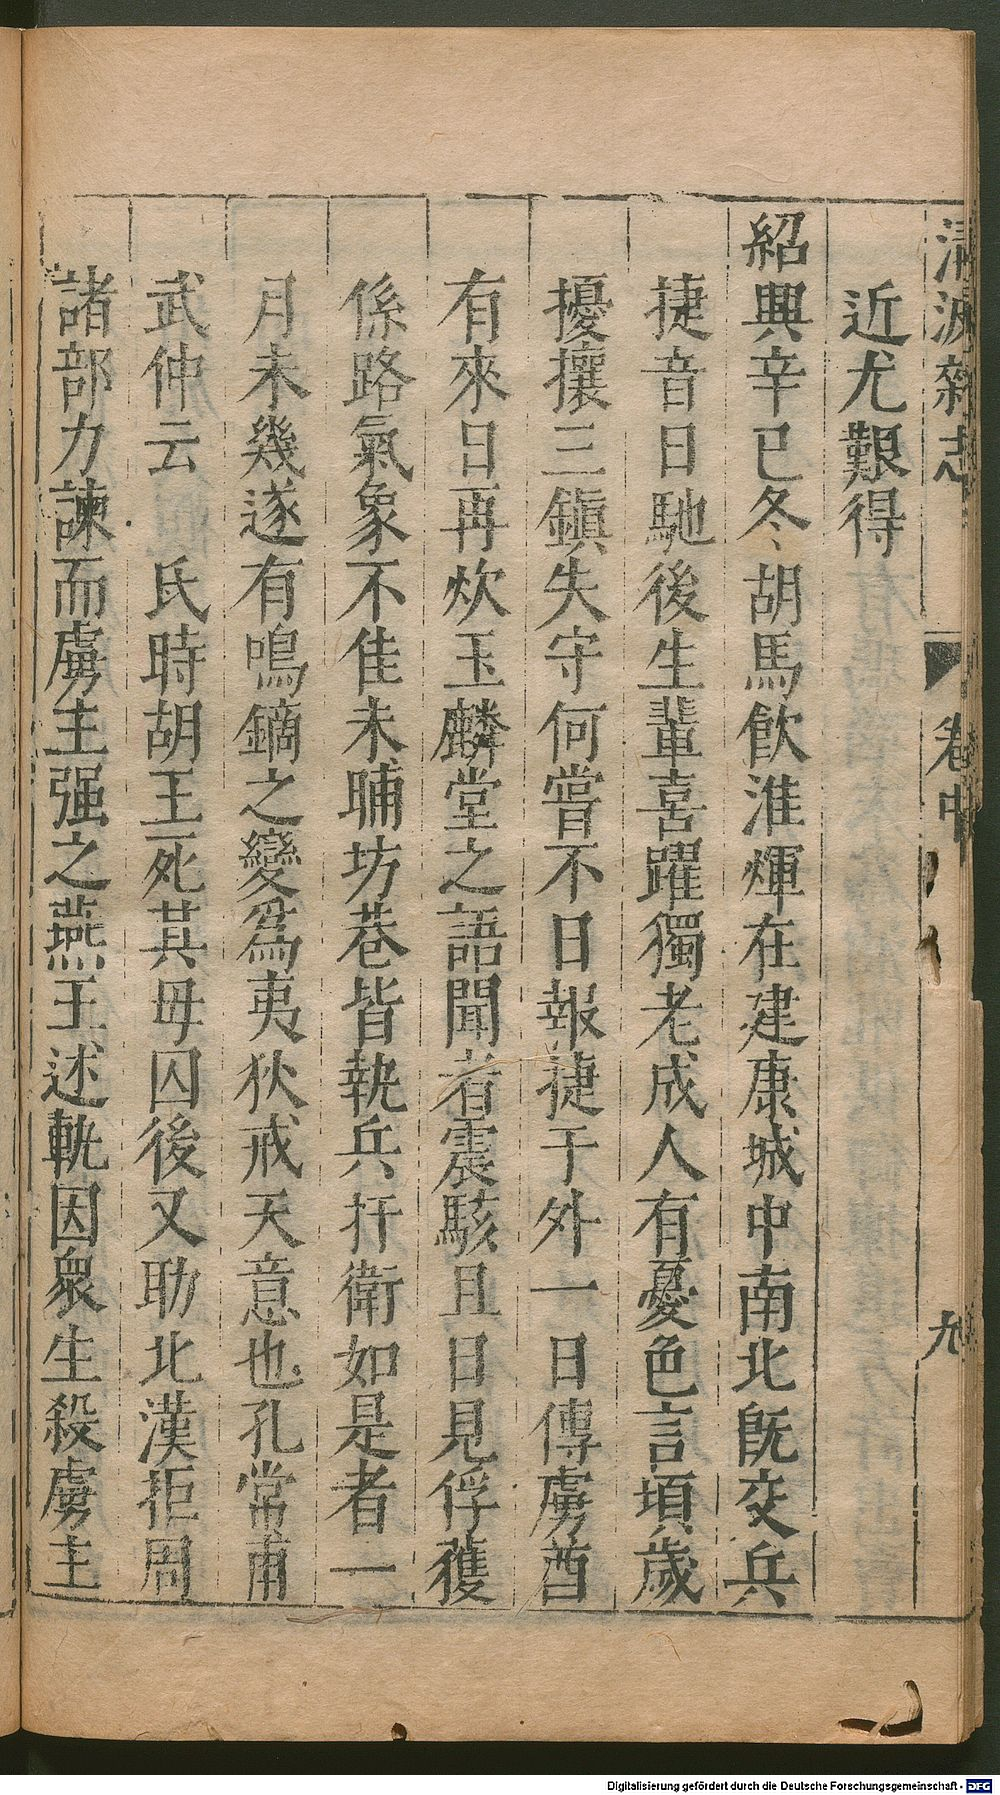 清波雜志 卷中 九
近尤艱得
紹興辛巳冬胡馬飲淮煇在建康城中南北旣交兵
捷音日馳後生輩喜躍獨老成人有憂色言頃歲
擾攘三鎮失守何嘗不日報捷于外一日傳虜酋
有來日再炊玉麟堂之語聞者震駭且日見俘獲
係路氣象不佳未晡坊巷皆執兵扞衛如是者一
月未幾遂有鳴鏑之變爲夷狄戒天意也孔常甫
武仲云 氏時胡王死其母囚後又助北漢拒周
諸部力諫而虜主强之燕王述軏因衆生殺虜主
Digitalisierung gefördert durch die Deutsche Forschungsgemeinschaft - DFG